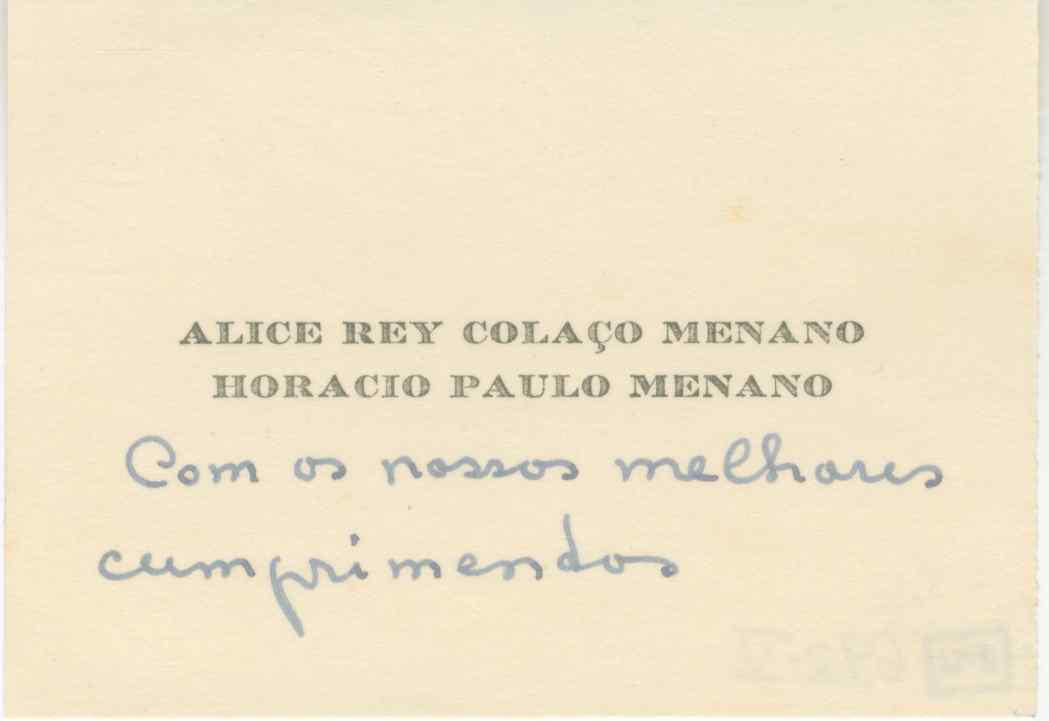 ALICE REY COLAÇO MENANO
HORACIO PAULO MENANO
Com os nossos melhores
cumprimentos